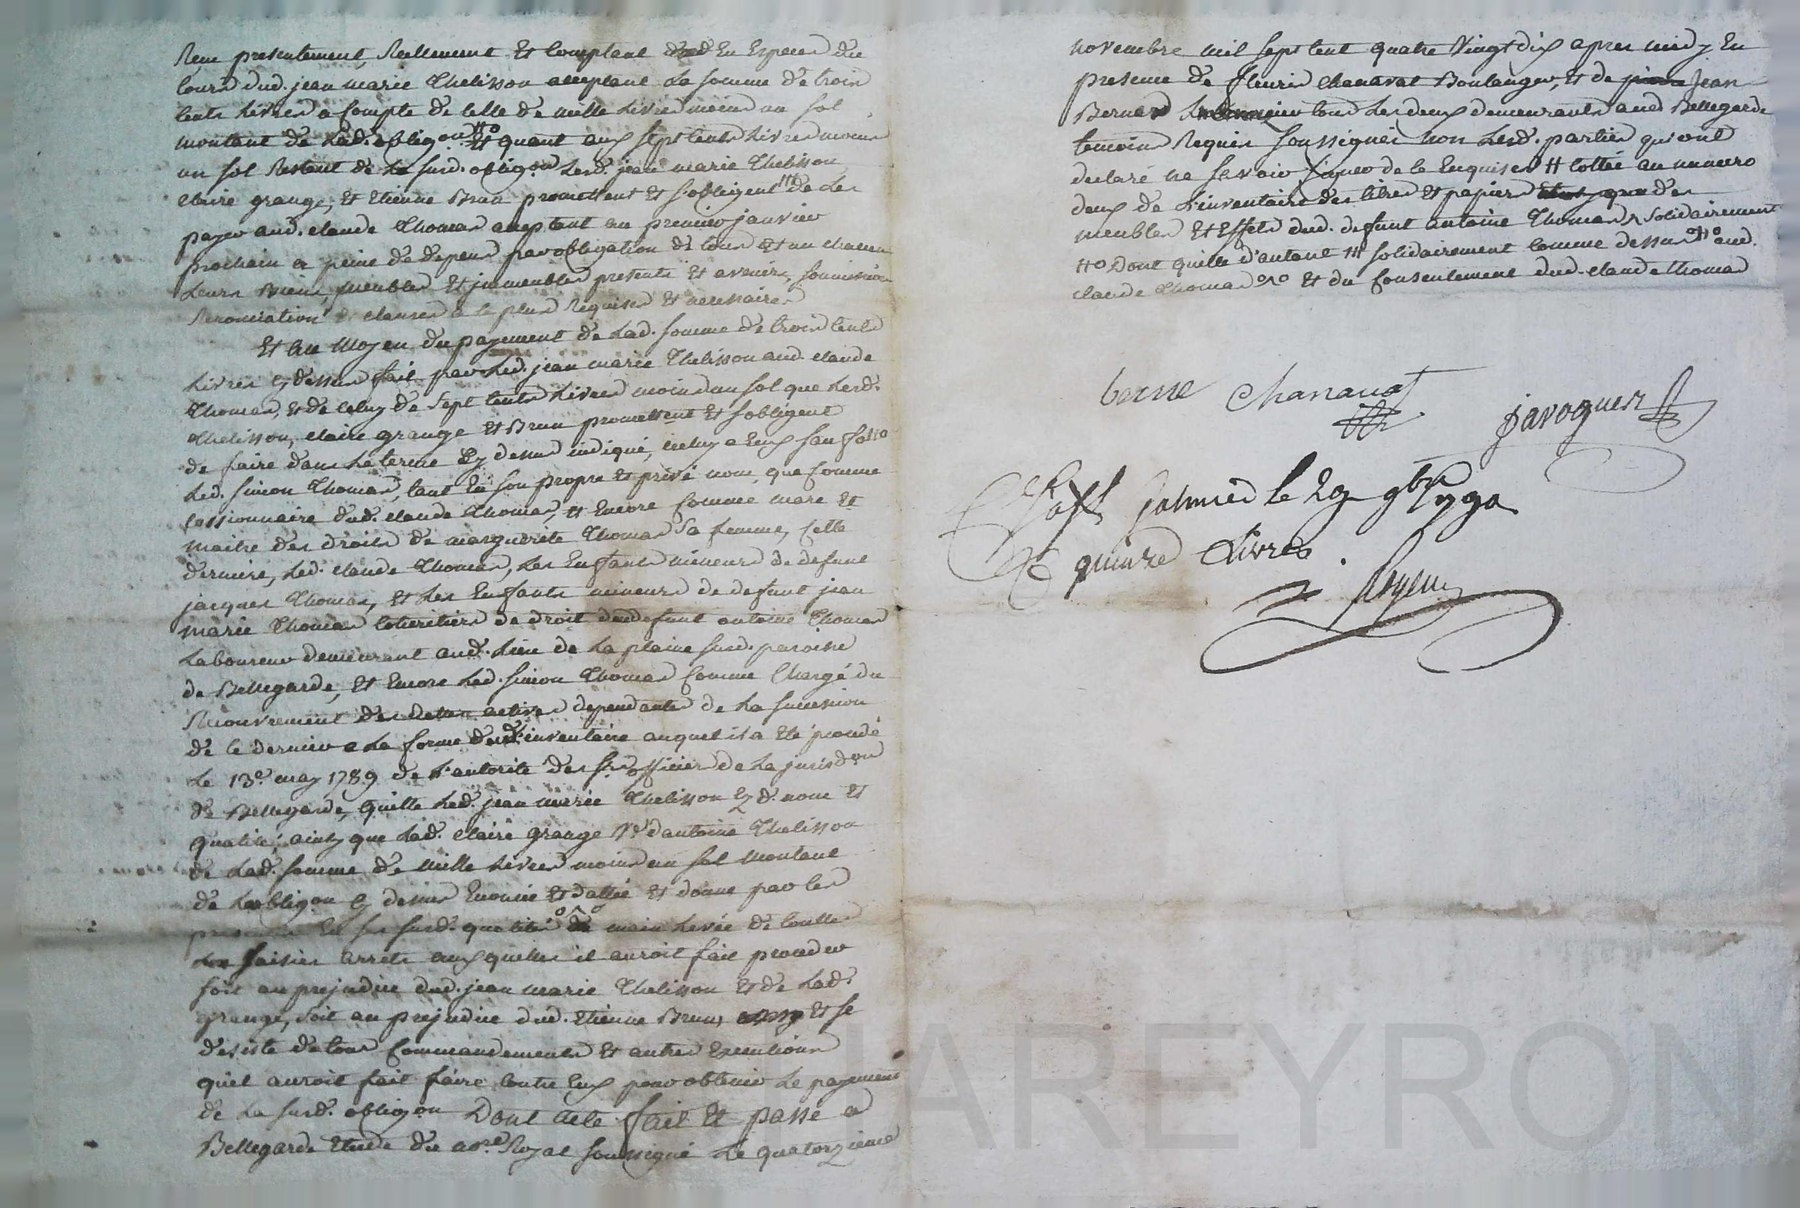 Reçu presentement, Reellement Et Comptant En Especes du
Cours dud. jean marie Thelisson acceptant La somme de trois
Cents Livres a Compte de Celle de mille Livres moins un sol
montant de Lad. obligon Et quant aux sept Cents Livres moins
un sol Restant de La susd. obligon Lesd. jean marie Thelisson
claire grange, Et Etienne Brun promettent Et s'obligent de Les
payer aud. claude Thomas acceptant au premier janvier
prochain a peine de depens par obligation de tous Et un chacun
Leurs Biens, meubles Et jmmeubles presents Et avenirs, soumissions
Renonciations clauses a le plus Requises Et necessaires
Et Au Moyen du payement de Lad. somme de trois Cents
Livres cy dessus fait par Led. jean marie Thelisson aud. claude
Thomas, Et de Celuy de sept Cents Livres moins un sol que Lesd.
Thelisson, claire grange Et Brun promettent Et s'obligent
de faire dans Le terme Cy dessus indiqué,
Led. simon Thomas, tant En son propre Et privé nom, que Comme
Cessionnaire dud. claude Thomas, Et Encore Comme mare Et
maitre des droits de marguerite Thomas sa femme, Cette
derniere, Led. claude Thomas, Les Enfants mineurs de defunt
jacques Thomas, Et Les Enfants mineurs de defunt jean
marie Thomas Coheritiers de droit dud defunt antoine Thomas
Laboureur demeurant aud. Lieu de La plaine susd. paroisse
de Bellegarde, Et Encore Led. simon Thomas Comme Chargé du
Recouvrement des dettes actives dependantes de La succession
de Ce dernier a La forme dud. inventaire auquel il a Eté procedé
Le 13e. may 1789 de L'autorité des srs officiers de La jurisdon
de Bellegarde, quitte Led. jean marie Thelisson Ez d. nom Et
qualité, ainsy que Lad. claire grange Ve. d'antoine Thelisson
de Lad. somme de Mille Livres moins un sol Montant
de L'obligon cy dessus Enoncée Et dattée Et donne par les
presentes En ses susd. qualités main Levée de toutes
saisies arrets auxquelles il auroit fait proceder
soit au prejudice dud. jean marie Thelisson Et de Lad.
grange, soit au prejudice dud. Etienne Brun, Et se
desiste de tous Commandements Et autres Executions
qu'il auroit fait faire Contre Eux pour obtenir Le payement
de La susd. obligon Dont acte fait Et passé a
Bellegarde Etude du nore. Royal soussigné Le quatorzieme
novembre mil sept Cent quatre Vingt dix apres midy En
presence de fleuris Chanavat Boulanger, Et de Jean
Bernard tous Les deux demeurants aud. Bellegarde
temoins Requis soussignés non Lesd. parties qui ont
declaré ne savoir signer de Ce Enquises # Cottée au numero
deux de L'inventaire des titres Et papiers des
meubles Et Effets dud. defunt antoine Thomas solidairement
#o Dont quitte d'autant # solidairement Comme dessus #o aud.
claude Thomas Et du Consentement dud. claude Thomas
berne Chanavat
javogues
galmier le 29 9bre 1790
quinze Livres
CHAREYRON